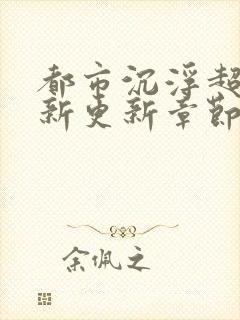 都市沉浮超
新更新章節
余佩之